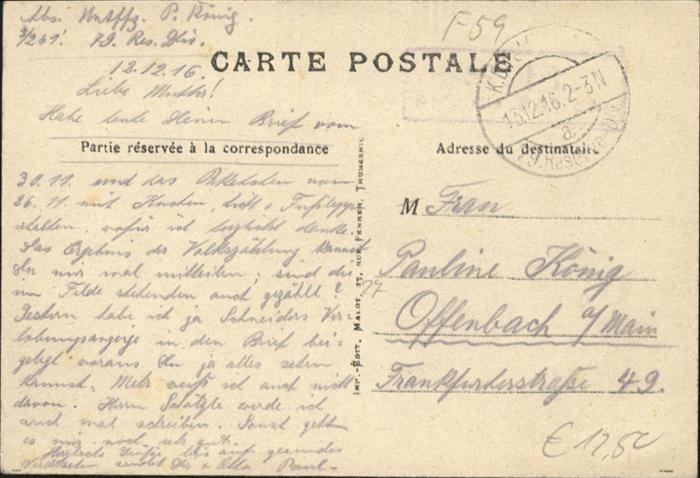 Abs. Untffz. P. König.
3/261. 79. Res. Div.
F-59
CARTE POSTALE
12.12.16.
Liebe Mutter!
Habe heute Deinen Brief vom
13.12.16. 2-3 N
a
Partie réservée à la correspondance
Adresse du destinataire
30.11. und das Paketchen vom
26.11. mit Kuchen,
erhalten, wofür ich herzlichst danke.
Das Ergebnis der Volkszählung kannst
Du mir mal mitteilen; sind die
im Felde stehenden auch gezählt?
Gestern habe ich ja Schneiders Ver-
lobungsanzeige in den Brief bei-
gelegt woraus Du ja alles sehen
kannst. Mehr weiß ich auch nicht
davon. Herrn Schätzle werde ich
auch mal schreiben. Sonst geht
es mir noch sehr gut.
Herzliche Grüße bis auf gesundes
Wiedersehen sendet Dir + Otto Paul.
IMP.-EDIT. MALOT, 27, RUE FERRER, THUMESNIL
27
M Frau
Pauline König
Offenbach a/Main
Frankfurterstraße 49.
€ 12,50